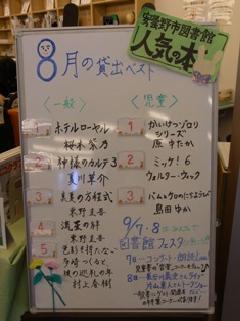 安曇野市図書館
人気の本
8月の貸出ベスト
〈一般〉
1 ホテルローヤル
桜木紫乃
2 神様のカルテ3
夏川草介
3 真夏の方程式
東野圭吾
4 流星の絆
東野圭吾
5 色彩を持たない
多崎つくると、
彼の巡礼の年
村上春樹
〈児童〉
1 かいけつゾロリ
シリーズ
原 ゆたか
2 ミッケ!6
ウォルター・ウィック
3 バムとケロのにちようび
島田 ゆか
9/7・8
図書館フェスタ
7日…コンサート・朗読